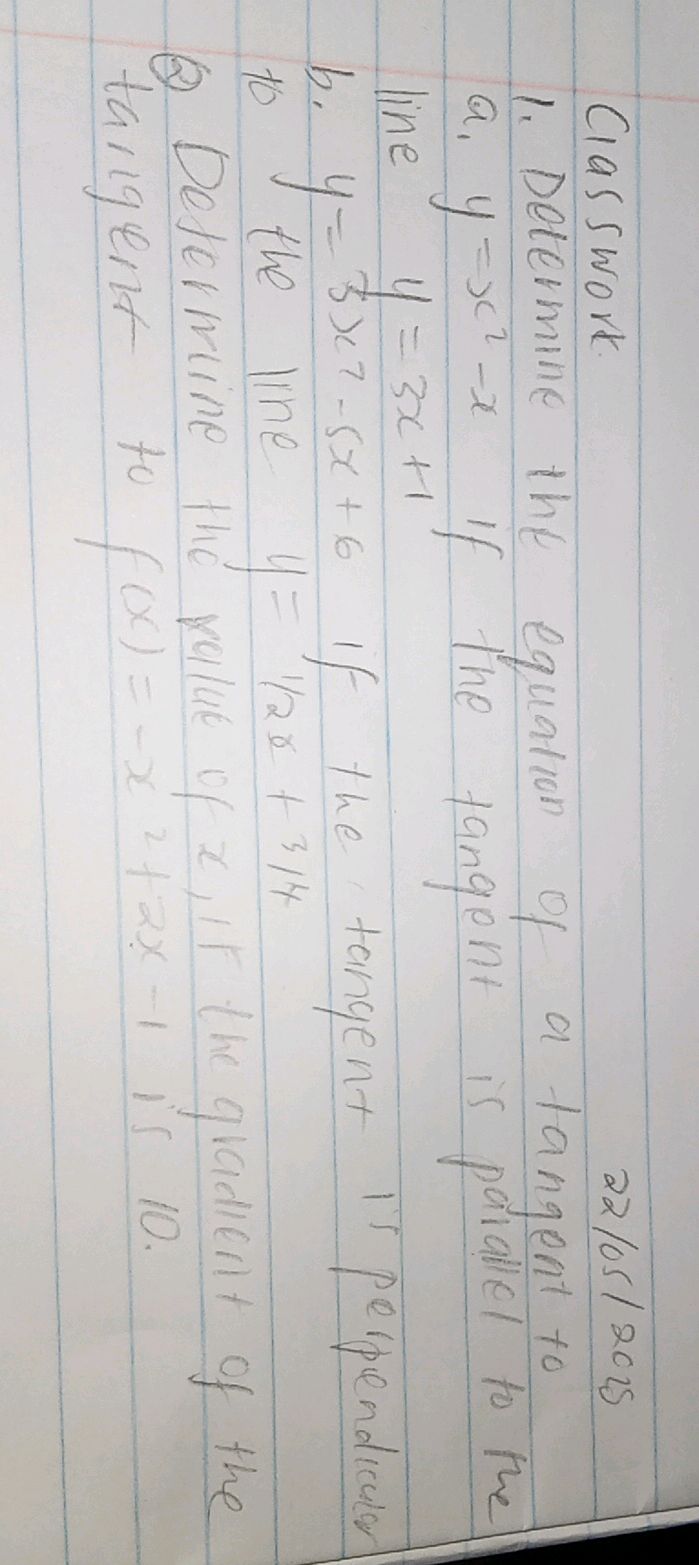 Classwork. 22/05/2025
1. Determine the equation of a tangent to
a. y=x²-x if the tangent is parallel to the
line y=3x+1
b. y=3x²-5x+6 if the tangent is perpendicular
to the line y=1/2x+3/4
② Determine the value of x, if the gradient of the
tangent to f(x)=-x²+2x-1 is 10.